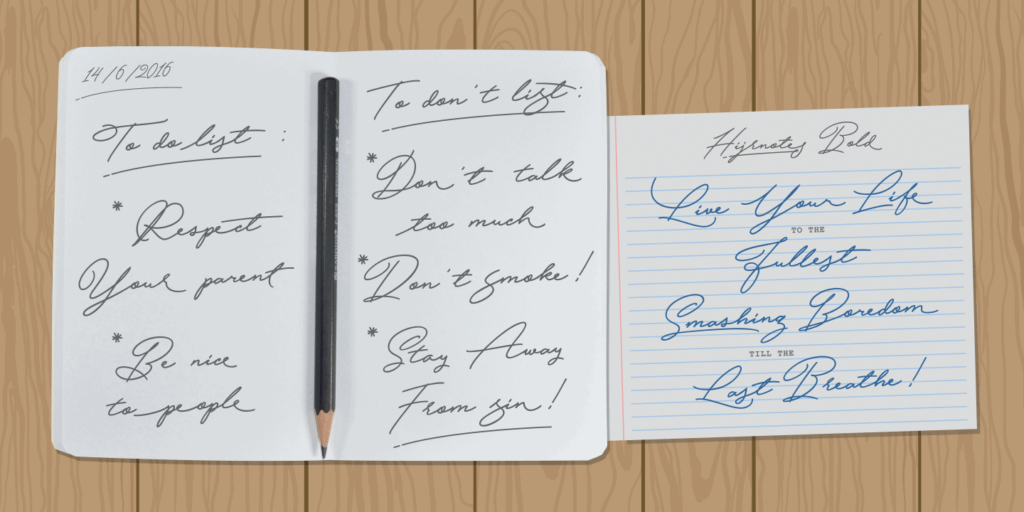 14/6/2016
To do list :
* Respect
Your parent
* Be nice
to people
To don't list :
* Don't talk
too much
* Don't smoke!
* Stay Away
From sin!
Hijrnotes Bold
Live Your Life
TO THE
Fullest
Smashing Boredom
TILL THE
Last Breathe!